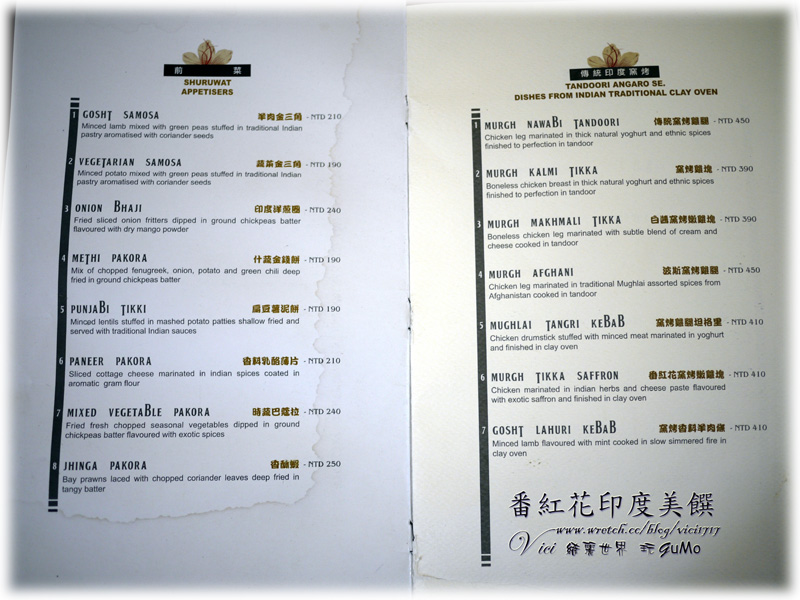 前菜
SHURUWAT
APPETISERS
1 GOSHT SAMOSA 羊肉金三角 - NTD 210
Minced lamb mixed with green peas stuffed in traditional Indian
pastry aromatised with coriander seeds
2 VEGETARIAN SAMOSA 蔬菜金三角 - NTD 190
Minced potato mixed with green peas stuffed in traditional Indian
pastry aromatised with coriander seeds
3 ONION BHAJI 印度洋蔥圈 - NTD 240
Fried sliced onion fritters dipped in ground chickpeas batter
flavoured with dry mango powder
4 METHI PAKORA 什蔬金錢餅 - NTD 190
Mix of chopped fenugreek, onion, potato and green chili deep
fried in ground chickpeas batter
5 PUNJABI TIKKI 扁豆薯泥餅 - NTD 190
Minced lentils stuffed in mashed potato patties shallow fried and
served with traditional Indian sauces
6 PANEER PAKORA 香料乳酪薄片 - NTD 210
Sliced cottage cheese marinated in indian spices coated in
aromatic gram flour
7 MIXED VEGETABLE PAKORA 時蔬巴蔻拉 - NTD 240
Fried fresh chopped seasonal vegetables dipped in ground
chickpeas batter flavoured with exotic spices
8 JHINGA PAKORA 香酥蝦 - NTD 250
Bay prawns laced with chopped coriander leaves deep fried in
tangy batter
傳統印度窯烤
TANDOORI ANGARO SE.
DISHES FROM INDIAN TRADITIONAL CLAY OVEN
1 MURGH NAWABI TANDOORI 傳統窯烤雞腿 - NTD 450
Chicken leg marinated in thick natural yoghurt and ethnic spices
finished to perfection in tandoor
2 MURGH KALMI TIKKA 窯烤雞塊 - NTD 390
Boneless chicken breast in thick natural yoghurt and ethnic spices
finished to perfection in tandoor
3 MURGH MAKHMALI TIKKA 白醬窯烤嫩雞塊 - NTD 390
Boneless chicken leg marinated with subtle blend of cream and
cheese cooked in tandoor
4 MURGH AFGHANI 波斯窯烤雞腿 - NTD 450
Chicken leg marinated in traditional Mughlai assorted spices from
Afghanistan cooked in tandoor
5 MUGHLAI TANGRI KEBAB 窯烤雞腿坦格里 - NTD 410
Chicken drumstick stuffed with minced meat marinated in yoghurt
and finished in clay oven
6 MURGH TIKKA SAFFRON 番紅花窯烤嫩雞塊 - NTD 410
Chicken marinated in indian herbs and cheese paste flavoured
with exotic saffron and finished in clay oven
7 GOSHT LAHURI KEBAB 窯烤香料羊肉條 - NTD 410
Minced lamb flavoured with mint cooked in slow simmered fire in
clay oven
番紅花印度美饌
www.wretch.cc/blog/vici1717
Vici 世界 玩 GuMo